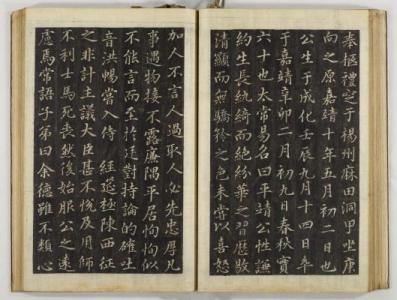 奉柩禮窆于楊州麻田洞甲坐庚
向之原嘉靖十年五月初二日也
公生于成化壬辰九月十四日卒
于嘉靖辛卯二月初九日春秋實
六十也太常易名曰平靖公性謙
約生長紈綺而絶紛華之習歷敭
清顯而無驕矜之色未嘗以喜怒
加人不言人過取人必先忠厚凡
事遇物接不露廉隅平居恂恂似
不能言而至於廷對持論的確吐
音洪暢嘗入侍 經筵極陳西征
之非計主議大臣甚不悅及用師
不利士馬死喪然後始服公之遠
慮焉常語子弟曰余德雖不類心